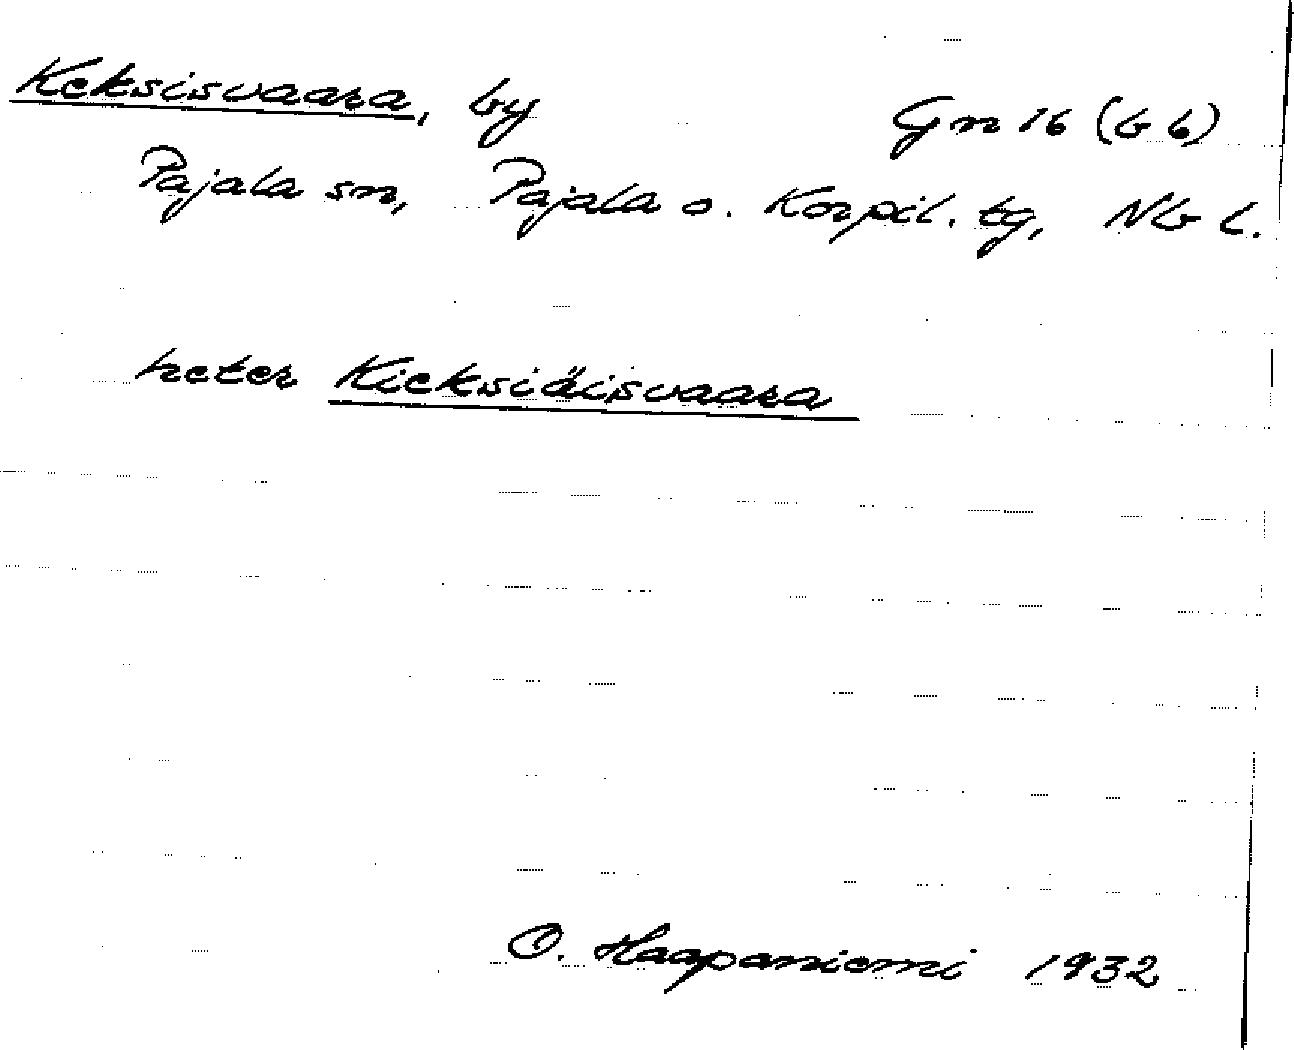 Keksisvaara, by Gn 16 (b 6)
Pajala sn, Pajala o. Korpil. tg, Nb l.
heter Kieksiäisvaara
O. Haapaniemi 1932